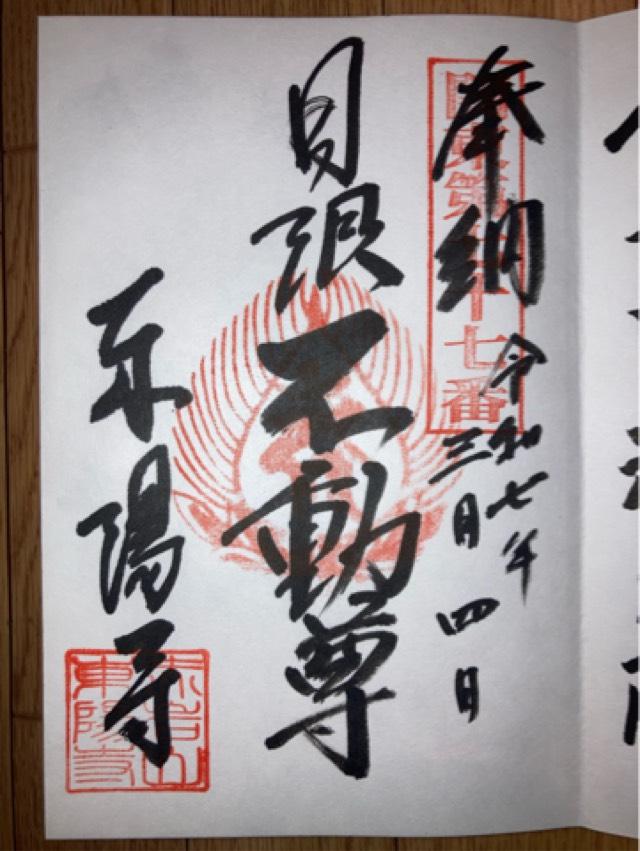 奉納
令和七年
三月四日
日限不動尊
東陽寺
東第
十七番
東陽寺